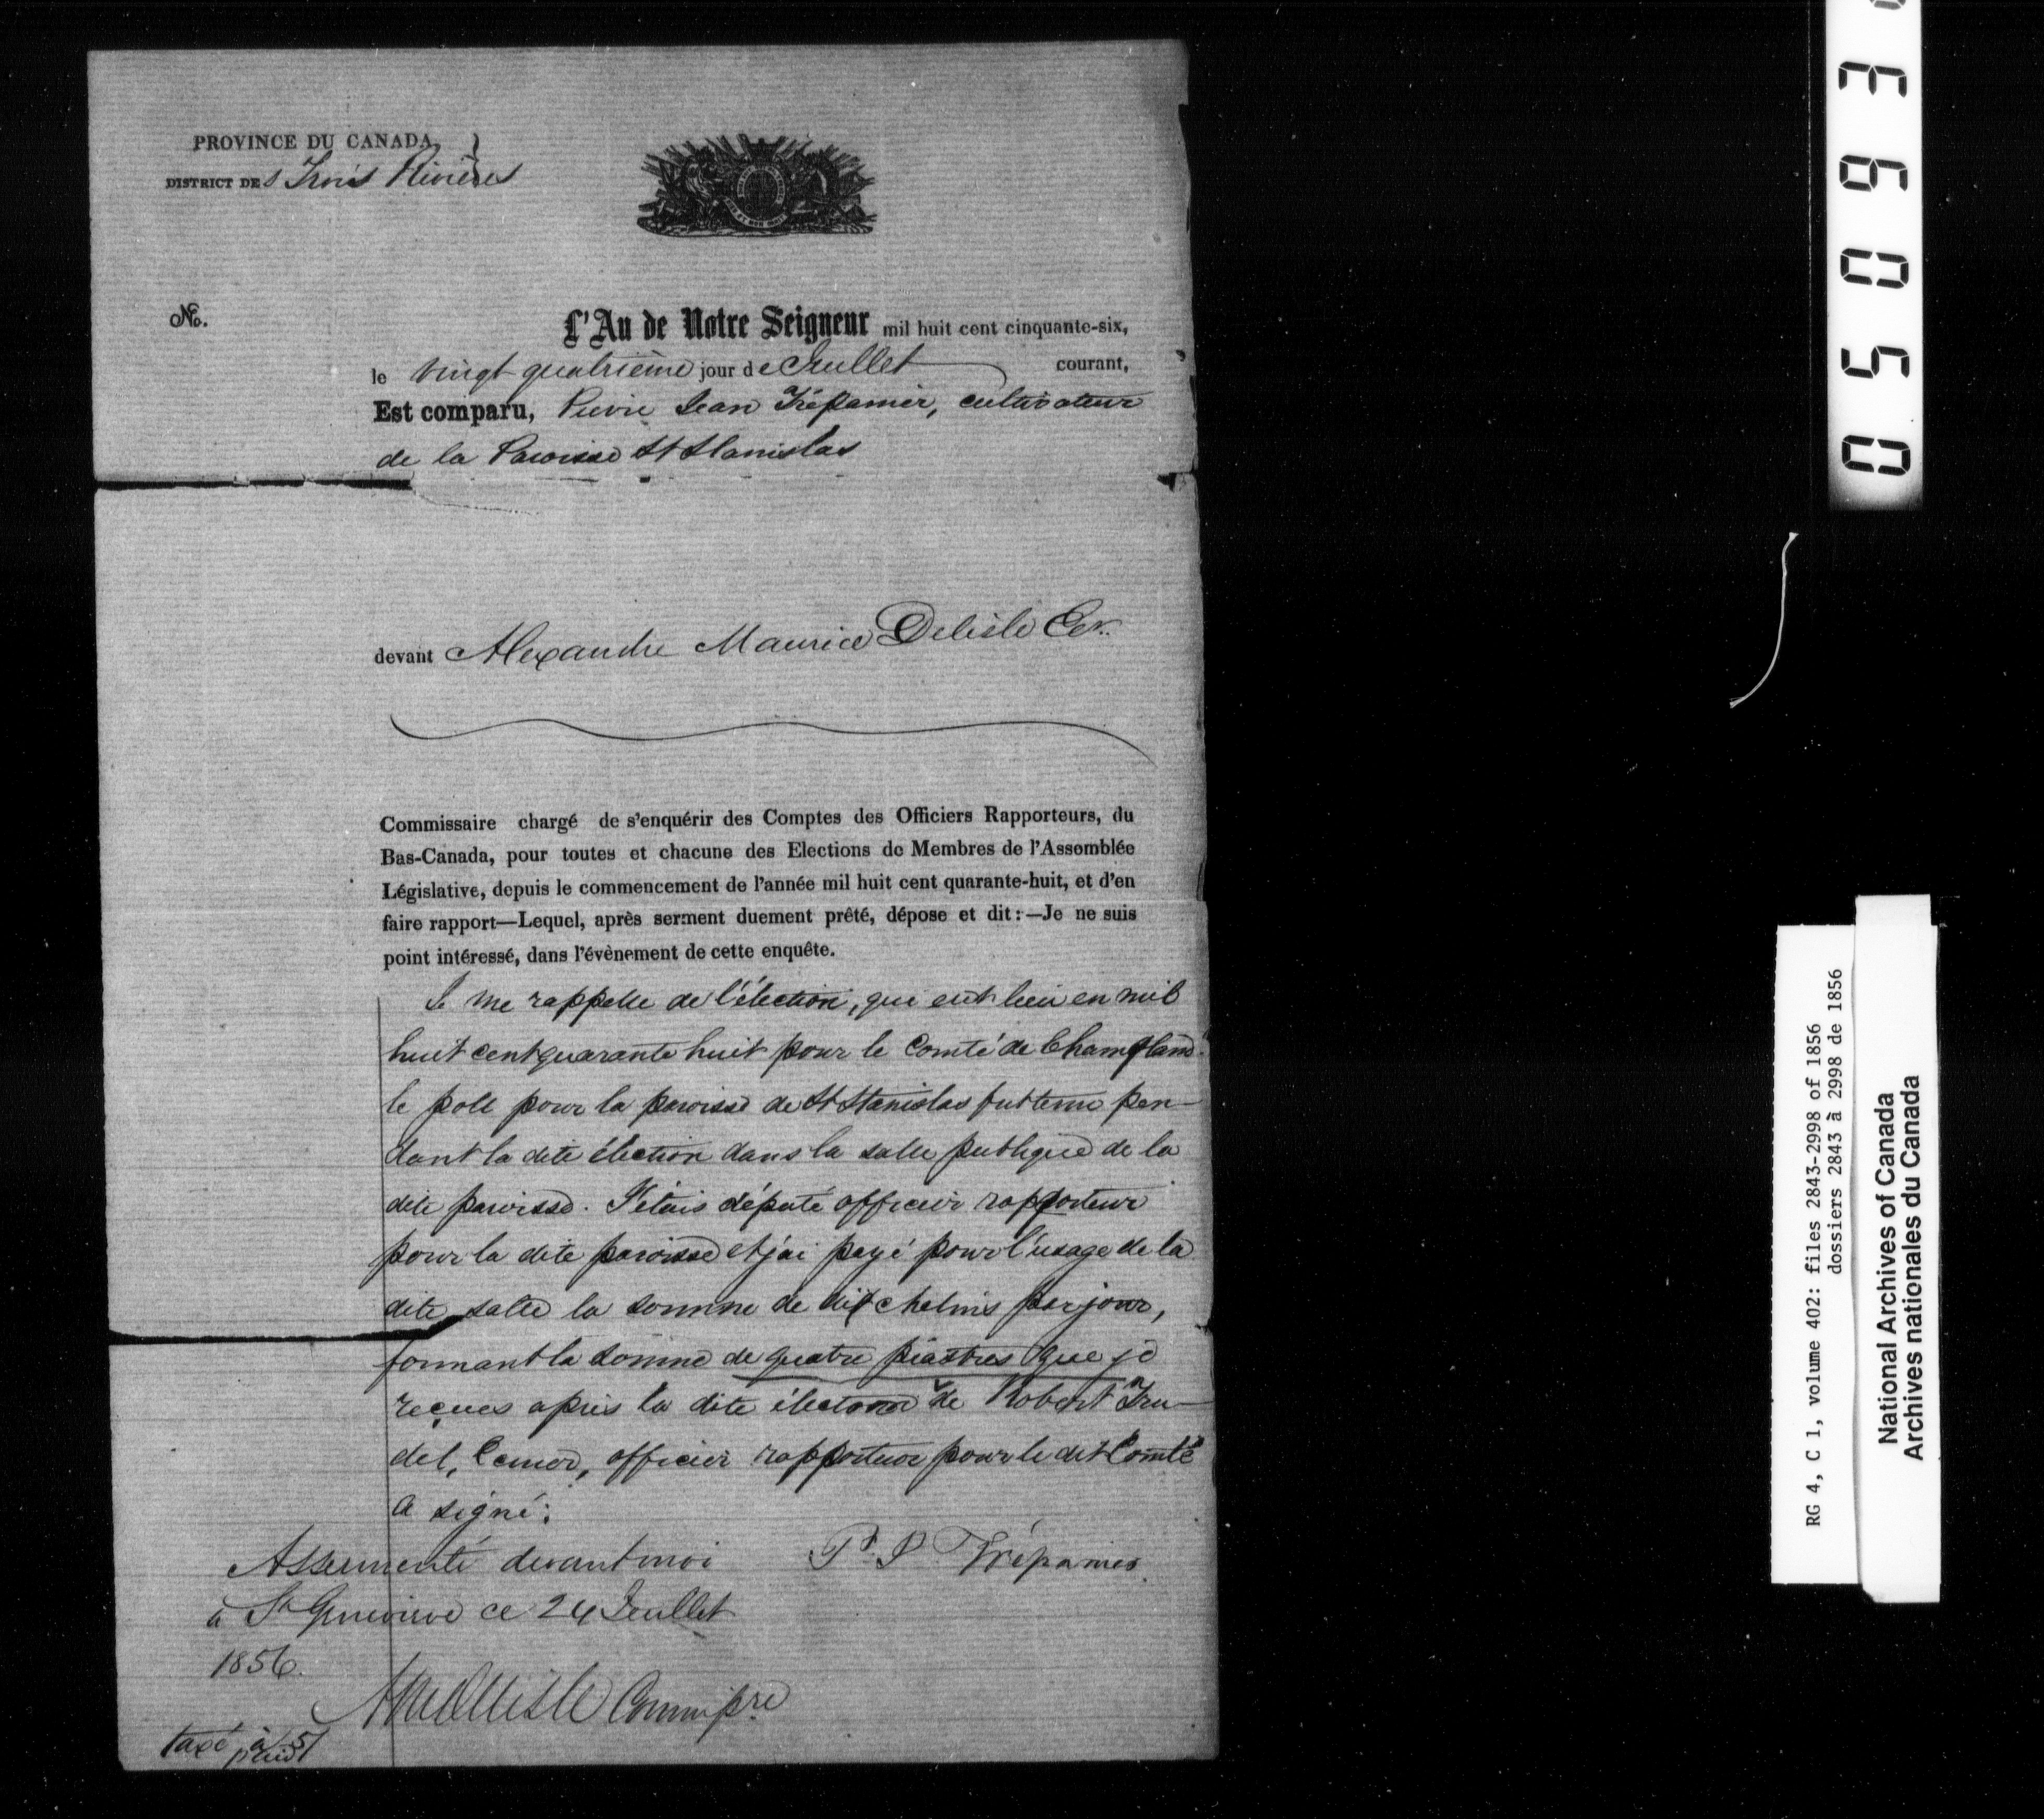 PROVINCE DU CANADA,
DISTRICT DEs Trois Rivières
No.
L'An de Notre Seigneur mil huit cent cinquante-six,
le vingt quatrième jour de Juillet courant,
Est comparu, Pierre Jean Trépanier, cultivateur
de la Paroisse St Stanislas
devant Alexandre Maurice Delisle Ecr.
Commissaire chargé de s'enquérir des Comptes des Officiers Rapporteurs, du
Bas-Canada, pour toutes et chacune des Elections de Membres de l'Assemblée
Législative, depuis le commencement de l'année mil huit cent quarante-huit, et d'en
faire rapport—Lequel, après serment duement prêté, dépose et dit:—Je ne suis
point intéressé, dans l'évènement de cette enquête.
Je me rappelle de l'élection, qui eut lieu en mil
huit cent quarante huit pour le Comté de Champlain
le poll pour la paroisse de St Stanislas fut tenu pen-
dant la dite élection dans la salle publique de la
dite paroisse. J'étais député officier rapporteur
pour la dite paroisse et j'ai payé pour l'usage de la
dite salle la somme de dix chelins par jour,
formant la somme de quatre piastres que je
reçues après la dite élection de Robert Tru-
del, Ecuier, officier rapporteur pour le dit Comté
a signé:
Assermenté devant moi P. J Trépanier
à Ste Geneviève ce 24 Juillet
1856.
AM Delisle Commissre
taxé à 5/
paid
0 5 0 9 3
RG 4, C 1, volume 402: files 2843-2998 of 1856
dossiers 2843 à 2998 de 1856
National Archives of Canada
Archives nationales du Canada